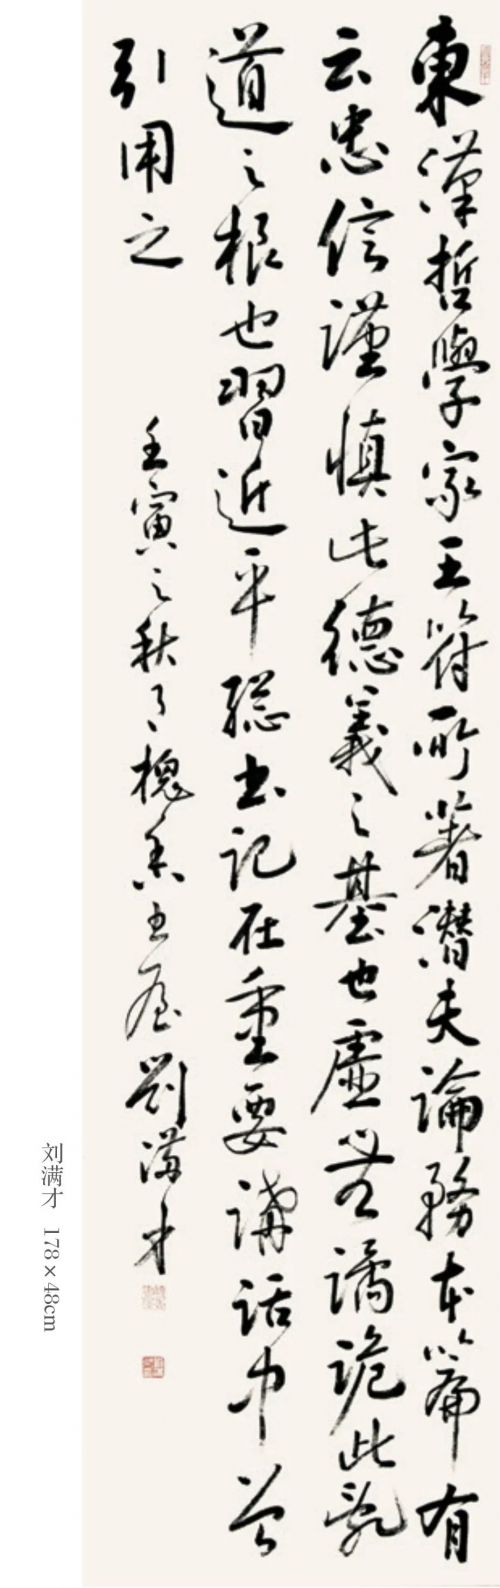 東漢哲學家王符所著潛夫論務本篇有
云忠信謹慎此德義之基也虛无譎詭此亂
道之根也習近平總書記在重要講話中曾
引用之
壬寅之秋月槐香書屋劉满才
刘满才 178×48cm